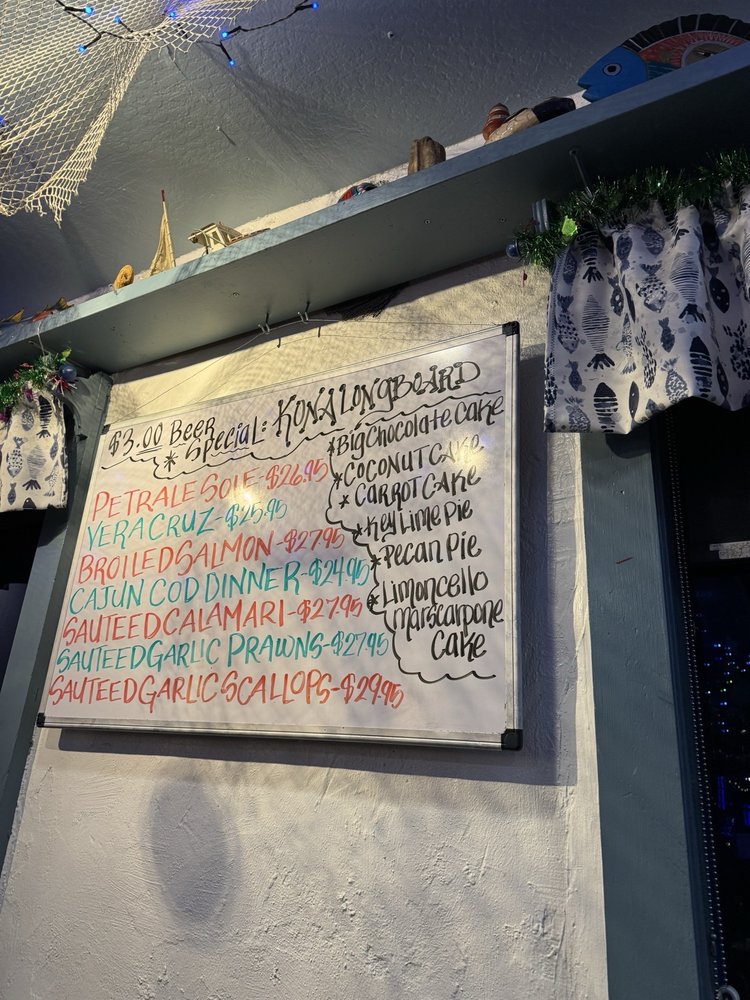 $3.00 Beer
* Special: KONA LONGBOARD
PETRALE SOLE-$26.95
VERACRUZ-$25.95
BROILED SALMON-$27.95
CAJUN COD DINNER-$24.95
SAUTEED CALAMARI-$27.95
SAUTEED GARLIC PRAWNS-$27.95
SAUTEED GARLIC SCALLOPS-$29.95
*Big Chocolate Cake
*COCONUT CAKE
* CARROT CAKE
*Key Lime Pie
*Pecan Pie
*Limoncello
marscarpone
Cake